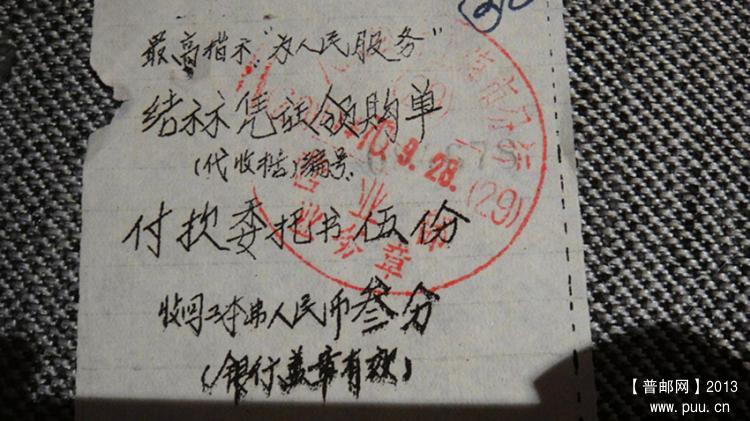 最高指示“为人民服务”
结算凭证领购单
(代收据)编号
付款委托书伍份
收回工本费人民币叁分
(银行盖章有效)
70.9.28.
(29)
业务章
【普邮网】2013
www.puu.cn